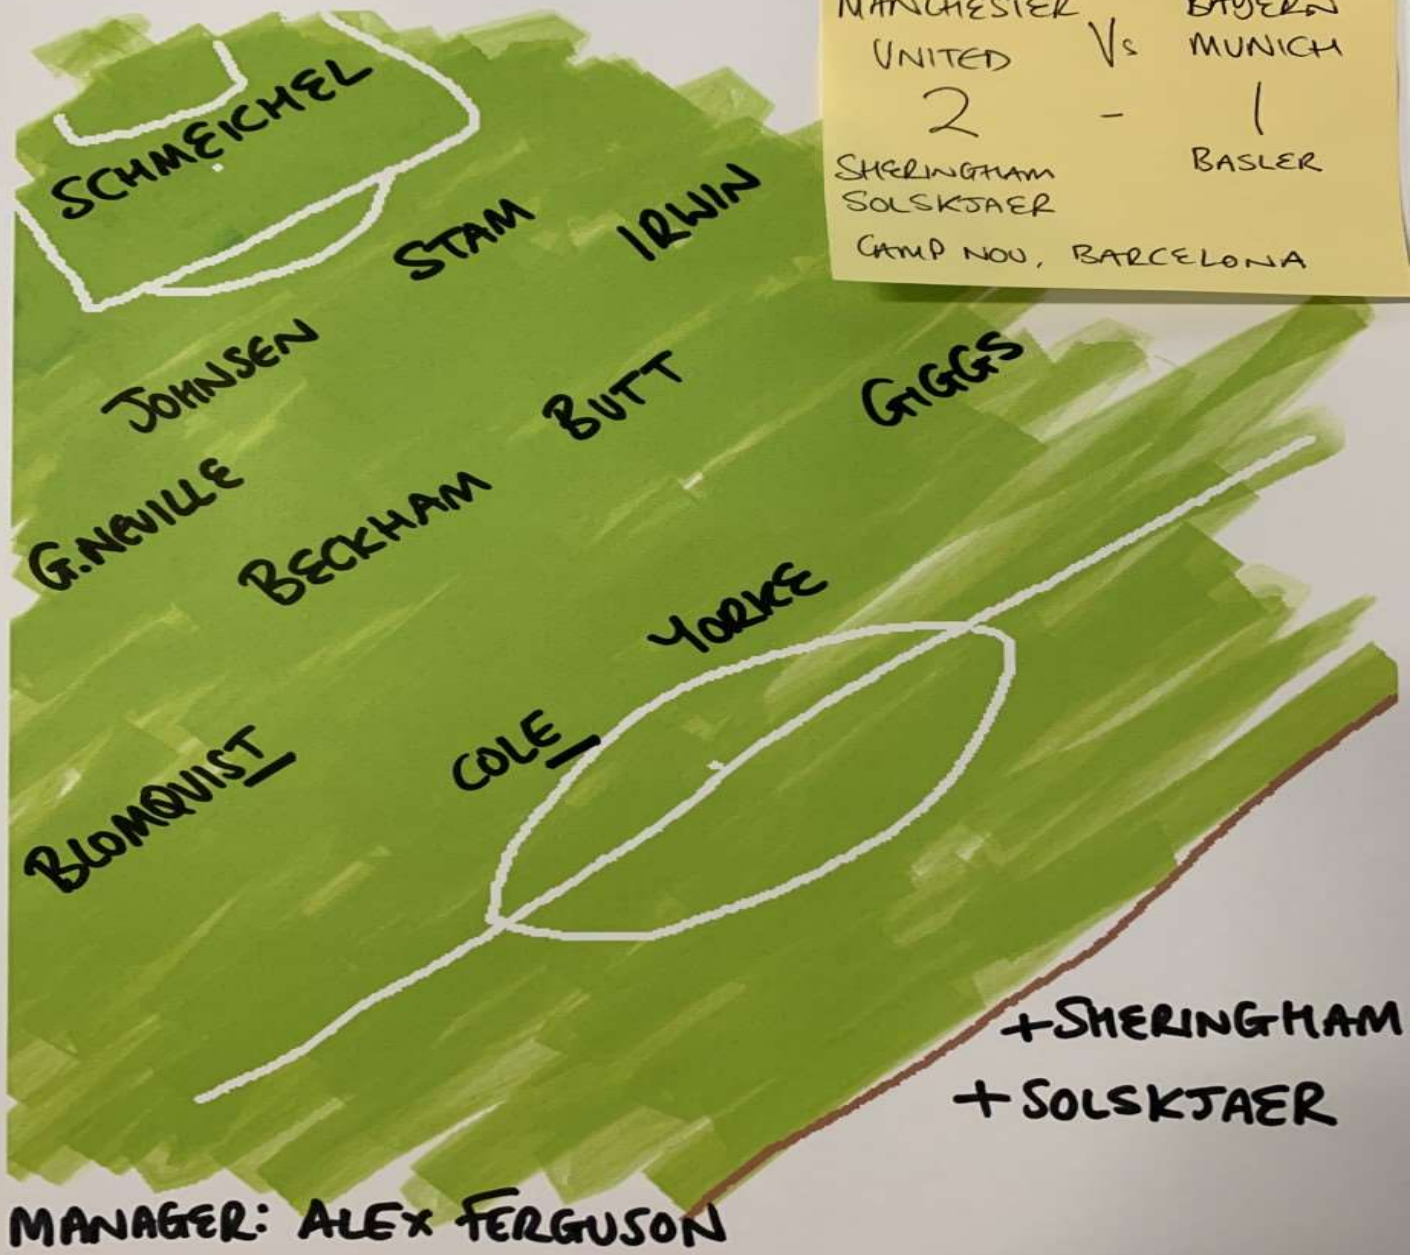 MANCHESTER
UNITED
Vs
BAYERN
MUNICH
2 - 1
SHERINGHAM
SOLSKJAER
BASLER
CAMP NOU, BARCELONA
SCHMEICHEL
STAM
IRWIN
JOHNSEN
G.NEVILLE
BUTT
GIGGS
BECKHAM
YORKE
COLE
BLOMQVIST
+SHERINGHAM
+SOLSKJAER
MANAGER: ALEX FERGUSON